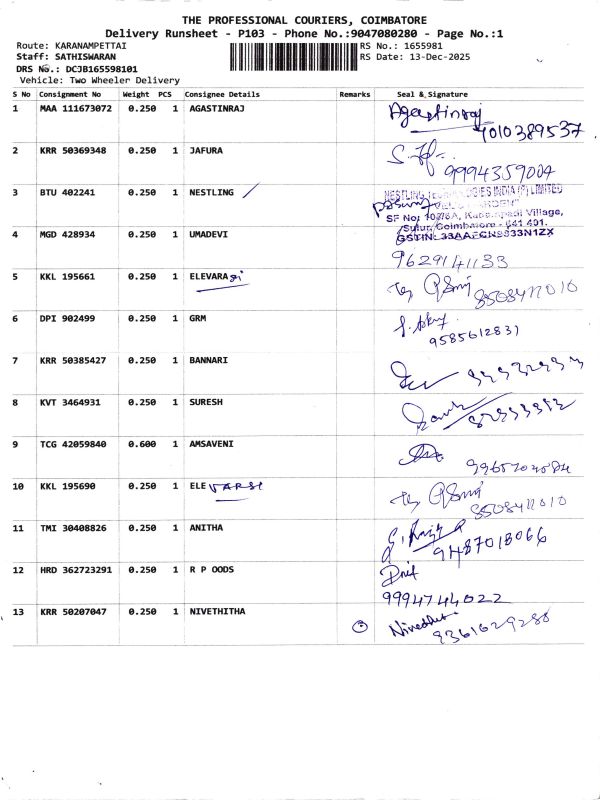 THE PROFESSIONAL COURIERS, COIMBATORE
Delivery Runsheet - P103 - Phone No.:9047080280 - Page No.:1
Route: KARANAMPETTAI RS No.: 1655981
Staff: SATHISWARAN RS Date: 13-Dec-2025
DRS No.: DCJB165598101
Vehicle: Two Wheeler Delivery
S No Consignment No Weight PCS Consignee Details Remarks Seal & Signature
1 MAA 111673072 0.250 1 AGASTINRAJ Agastinraj
4010389537
2 KRR 50369348 0.250 1 JAFURA
9994359004
3 BTU 402241 0.250 1 NESTLING NESTLING TECHNOLOGIES INDIA (P) LIMITED
SF No: Village,
Sulur, Coimbatore - 641 401.
4 MGD 428934 0.250 1 UMADEVI GSTIN:
9629141133
5 KKL 195661 0.250 1 ELEVARASI
8508411010
6 DPI 902499 0.250 1 GRM
9585612831
7 KRR 50385427 0.250 1 BANNARI
8 KVT 3464931 0.250 1 SURESH
9 TCG 42059840 0.600 1 AMSAVENI
10 KKL 195690 0.250 1 ELEVARSI
8508411010
11 TMI 30408826 0.250 1 ANITHA
9487018066
12 HRD 362723291 0.250 1 R P OODS
9994744022
13 KRR 50207047 0.250 1 NIVETHITHA
9361629286